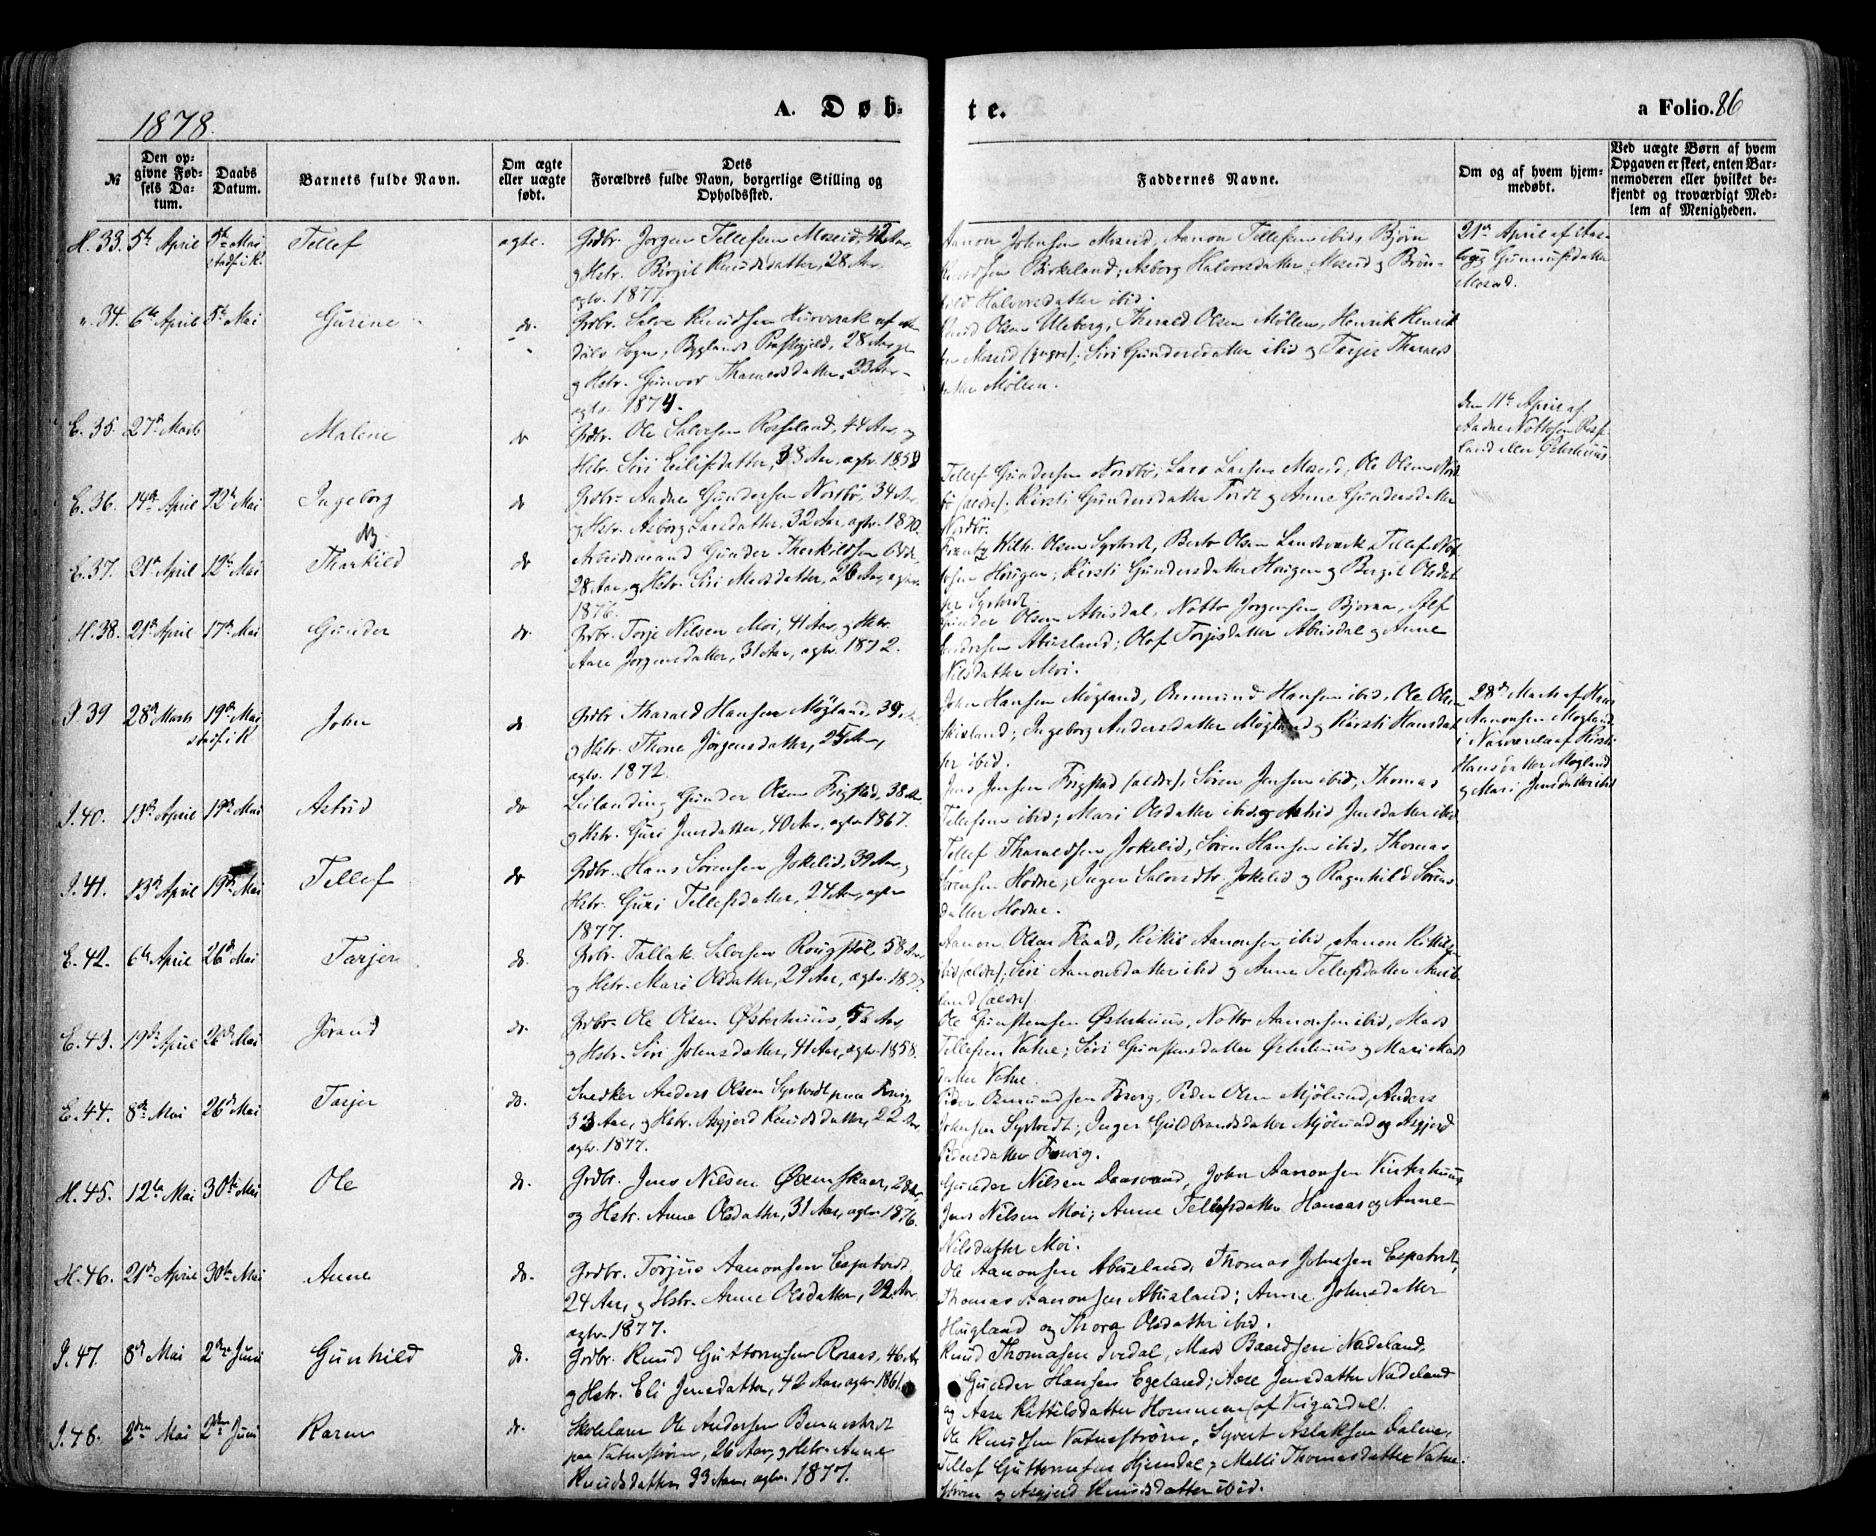 1878.
A. Døb-
te.
a Folio. 86
№
Den op-
givne Fød-
sels Da-
tum.
Daabs
Datum.
Barnets fulde Navn.
Om ægte
eller uægte
født.
Dets
Forældres fulde Navn, borgerlige Stilling og
Opholdssted.
Faddernes Navne.
Om og af hvem hjem-
medøbt.
Ved uægte Børn af hvem
Opgaven er skeet, enten Bar-
nemoderen eller hvilket be-
kjendt og troværdigt Med-
lem af Menigheden.
H. 33. 5te April 5te Mai Tellef ægte. Grdbr. Jorgen Tellefsen Moseid, 42 Aar,
stadf. i K.
og Hstr. Birgit Knudsdatter, 28 Aar,
agtv. 1877.
Aanon Johnsen Moseid, Aanon Tellefsen ibid, Bjørn
Birkeland; Asborg Halvorsdatter Moseid og
Halvorsdatter ibid.
21de April af
Gunnufsdatter
Moseid.
" 34. 6te April 5te Mai Gurine do. Grdbr. Salve Knudsen af
Sogn, Byglands Præstegjeld, 28 Aar,
og Hstr. Gunvor datter, 23 Aar,
agtv. 1874.
Olsen Uleberg, Tharald Olsen Møllen, Henrik Henrik
Moseid (yngre); Siri Gundersdatter ibid og Tarjer
datter Møllen.
E. 35. 27de Marts Malene do Grdbr. Ole Salvesen Rosseland, 44 Aar, og
Hstr. Siri Eilifsdatter, 38 Aar, agtv. 1858
den 11te April af
Aadne Nottosen
land eller Østerhuus
E. 36. 14de April 12te Mai Ingeborg do Grdbr. Aadne Gundersen Nordbø, 34 Aar,
og Hstr. Asborg Larsdatter, 32 Aar, agtv. 1870.
Tellef Gundersen Nordbø; Lars Larsen Moseid, Ole Olsen
bø (ældre); Kirsti Gundersdatter og Anne Gundersdatter
Nordbø.
E. 37. 21de April 12te Mai Tharkild do Arbeidsmand Gunder Therkildsen
28 Aar, og Hstr. Siri Madsdatter, 26 Aar, agtv.
1876.
Wilh. Olsen Syrtveit, Olsen Landsverk, Tellef
Hougen; Kirsti Gundersdatter Hougen og Bergit Olsdat
ter Syrtveit.
H. 38. 21de April 17de Mai Gunder do. Grdbr. Torje Nilsen Moi, 41 Aar, og Hstr.
Aase Jorgensdatter, 31 Aar, agtv. 1872.
Olsen Abusdal, Notto Jorgensen Bjoraa,
Abusland; Olof Torjisdatter Abusdal og Anne
Nilsdatter Moi.
I 39 28de Marts 19de Mai John do Grdbr. Tharald Hansen Møgland, 39 Aar,
stadf. i K
og Hstr. Thone Jørgensdatter, 25 Aar,
agtv. 1872.
John Hansen Møgland, Osmund Hansen ibid, Ole Olsen
; Ingeborg Andersdatter Møgland og Kirsti Hansdat
ter ibid.
28de Marts af Hans
Aanonsen Møgland
i Nærværelse af Kirsti
Hansdatter Møgland
og Mari Jensdatter ibid
I. 40. 13de April 19de Mai Astrid do Leilænding Gunder Olsen Frigstad, 38 Aar,
og Hstr. Guri Jensdatter, 40 Aar, agtv. 1867.
Jens Jensen Frigstad (ældre); Søren Jensen ibid; Thomas
Tellefsen ibid; Mari Olsdatter ibid og Astrid Jensdatter ibid
I. 41. 13de April 19de Mai Tellef do Grdbr. Hans Sørensen Jokelid, 39 Aar, og
Hstr. Guri Tellefsdatter, 24 Aar, agtv
1877.
Tellef Tharaldsen Jokelid, Søren Hansen ibid, Thomas
Sørensen Hodne; Inger Salvesdtr. Jokelid og Ragnhild Sørens
datter Hodne.
E. 42. 6te April 26de Mai Tarjer do. Grdbr. Tallak Salvesen Rougstøl, 58 Aar,
og Hstr. Mari Olsdatter, 29 Aar, agtv. 1877.
Aanon Olsen Flaad, Kittil Aanonsen ibid, Aanon Kittils
ibid (ældre); Siri Aanonsdatter ibid og Anne Tellefsdatter
land (ældre)
E. 43. 19de April 26de Mai Jorand do. Grdbr. Ole Olsen Østerhuus, 53 Aar,
og Hstr. Siri Johnsdatter, 41 Aar, agtv. 1858.
Ole Gunstensen Østerhuus, Notto Aanonsen ibid, Mads
Tellefsen Vatne; Siri Gunstensdatter Østerhuus og Mari Mads
datter Vatne.
E. 44. 8de Mai 26de Mai Tarjer do. Snedker Anders Olsen Syrtveit paa
33 Aar, og Hstr. Asgjerd Knudsdatter, 22 Aar,
agtv. 1877.
Peder Osmundsen, Peder Olsen Mjølund, Anders
Johnsen Syrtveit; Inger Guldbrandsdatter Mjølund og Asgjerd
Pedersdatter.
H. 45. 12te Mai 30te Mai Ole do. Grdbr. Jens Nilsen Øxenskaar, 28 Aar,
og Hstr. Anne Olsdatter, 31 Aar, agtv. 1876.
Gunder Nilsen Daasvand, John Aanonsen
Jens Nilsen Moi; Anne Tellefsdatter Hanaas og Anne
Nilsdatter Moi.
H. 46. 21de April 30te Mai Anne do. Grdbr. Torjus Aanonsen Espetveit
24 Aar, og Hstr. Anne Olsdatter, 22 Aar
agtv. 1877.
Ole Aanonsen Abusland, Thomas Johnsen Espetveit,
Thomas Aanonsen Abusland; Anne Johnsdatter
Haugland og Thora Olsdatter ibid.
I. 47. 8de Mai 2den Juni Gunhild do. Grdbr. Knud Guttormsen Rosaas, 46 Aar
og Hstr. Eli Jensdatter, 42 Aar, agtv. 1861
Knud Thomasen Ivedal, Mads Baardsen Nadeland,
Gunder Hansen Egeland; Aase Jensdatter Nadeland
og Aase Kittilsdatter Hommen (af Vigusdal).
I. 48. 2den Mai 2den Juni Karen do. Skolelærer Ole Andersen
paa Vatnestrøm, 26 Aar, og Hstr. Anne
Knudsdatter, 33 Aar, agtv. 1877.
Ole Knudsen Vatnestrøm, Syvert Aslaksen Dalene,
Tellef Guttormsen Hjemdal; Melli Thomasdatter Vatne
strøm og Asgjerd Knudsdatter ibid.